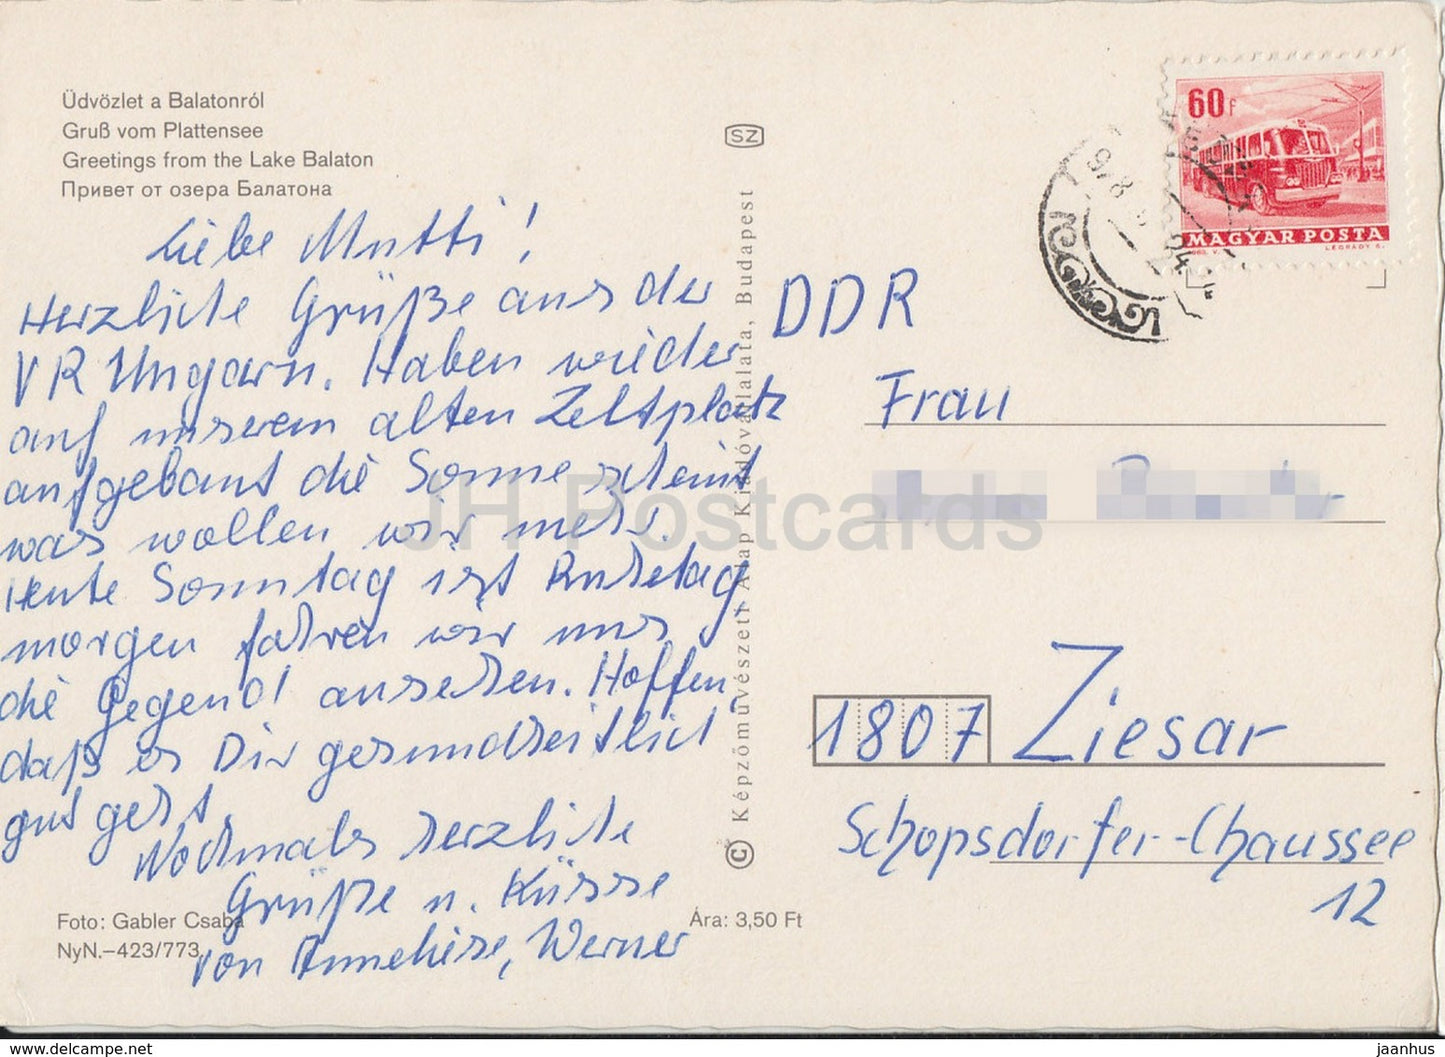 Üdvözlet a Balatonról
Gruß vom Plattensee
Greetings from the Lake Balaton
Привет от озера Балатона
Liebe Mutti!
Herzliche Grüße aus der
VR Ungarn. Haben wieder
auf unserem alten Zeltplatz
aufgebaut die Sonne scheint
was wollen wir mehr.
Heute Sonntag ist Ruhetag,
morgen fahren wir uns
die Gegend ansehen. Hoffen,
daß es Dir gesundheitlich
gut geht.
Nochmals herzliche
Grüße u. Küsse
von Anneliese, Werner
Foto: Gabler Csaba
NyN.–423/773
Ára: 3,50 Ft
SZ
© Képzőművészeti Alap Kiadóvállalata, Budapest
60f
MAGYAR POSTA
LÉGRÁDY S.
DDR
Frau
1807 Ziesar
Schopsdorfer-Chaussee
12
JH Postcards
https://www.jh-postcards.com
jaanhus